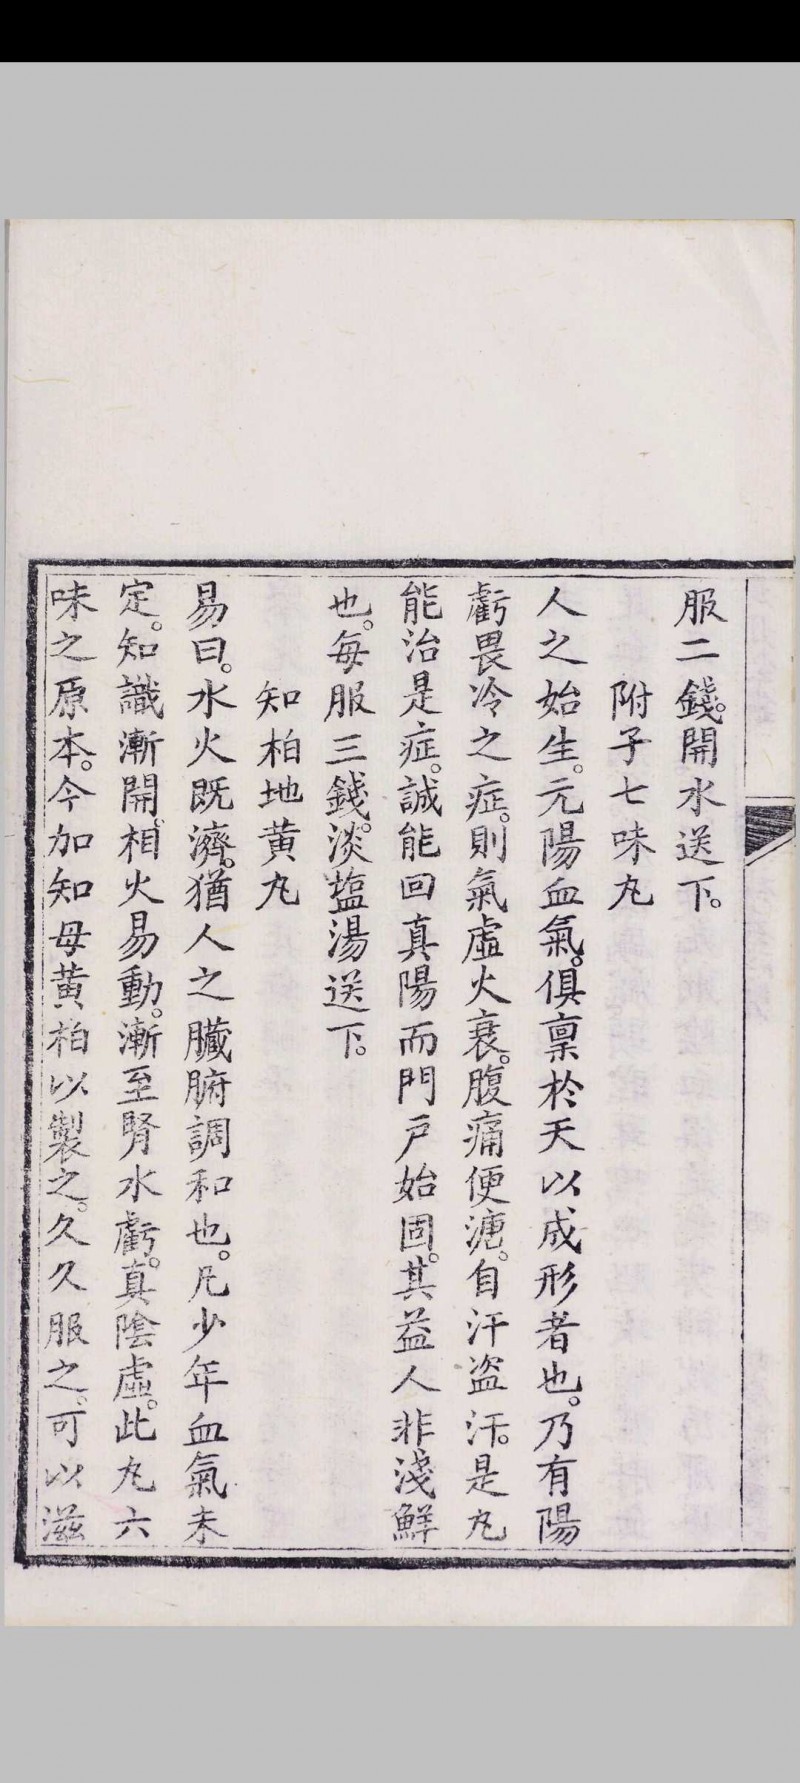 服二錢。開水送下。
附子七味丸
人之始生。元陽血氣。俱稟於天以成形者也。乃有陽
虧畏冷之症。則氣虛火衰。腹痛便溏。自汗盜汗。是丸
能治是症。誠能回真陽而門戶始固。其益人非淺鮮
也。每服三錢。淡塩湯送下。
知柏地黄丸
易曰。水火既濟。猶人之臟腑調和也。凡少年血氣未
定。知識漸開。相火易動。漸至腎水虧。真陰虛。此丸六
味之原本。今加知母黄柏以製之。久久服之。可以滋